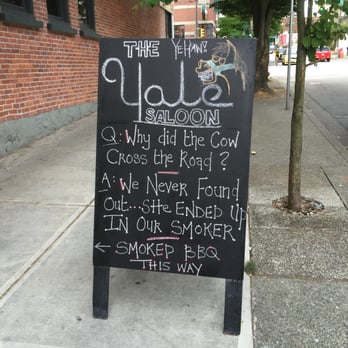 THE YEHAW!
Yale
SALOON
Q: Why did the Cow
Cross the Road?
A: We Never Found
Out...SHe ENDED Up
IN Our SMOKER
← SMOKED BBQ
THIS WAY